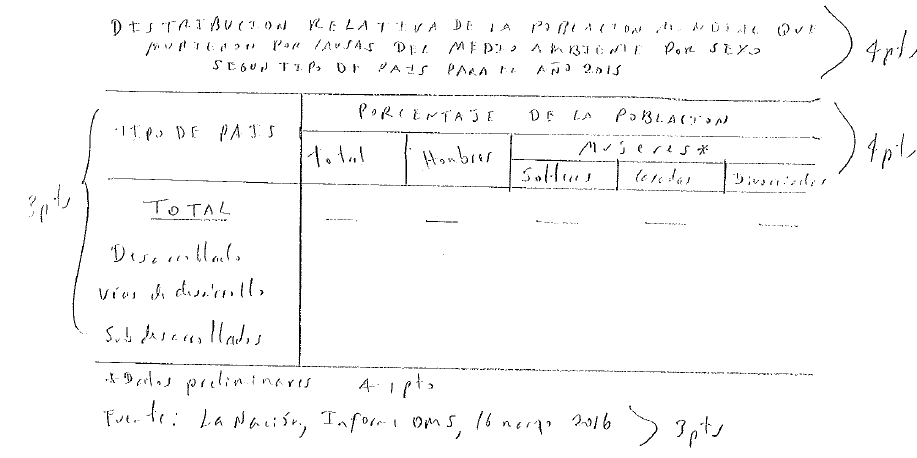 DISTRIBUCION RELATIVA DE LA POBLACION MUNDIAL QUE
MURIERON POR CAUSAS DEL MEDIO AMBIENTE POR SEXO
SEGUN TIPO DE PAIS PARA EL AÑO 2015
4 pts
TIPO DE PAIS
PORCENTAJE DE LA POBLACION
Total
Hombres
Mujeres*
Solteras
Casadas
Divorciadas
4 pts
3 pts
TOTAL
Desarrollado
Vías de desarrollo
Subdesarrollados
*Datos preliminares
1 pto
Fuente: La Nación, Informe OMS, 16 marzo 2016
3 pts